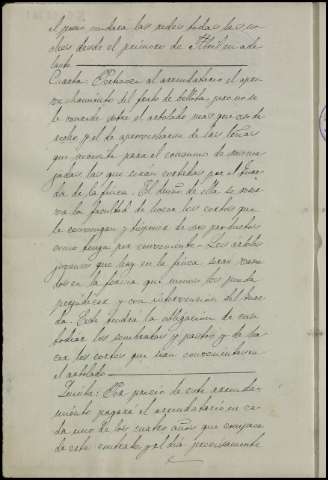 el perro mudara las redes todas las no-
ches desde el primero de Abril en ade-
lante.
Cuarta: Pertenece al arrendatario el apro-
vechamiento del fruto de bellota pero no se
le concede sobre el arbolado mas que ese de-
recho y el de aprovecharse de las leñas
que necesite para el consumo de sus ma-
jadas las que seran cortadas por el Guar-
da de la finca. El dueño de ella se reser-
va la facultad de hacer los cortes que
le convengan y disponer de sus productos
como tenga por conveniente. Los arboles
jovenes que hay en la finca seran
en la forma que menos los pueda
perjudicar y con intervencion del Guar-
da. Este tendra la obligacion de cus-
todiar los sembrados y pastos y de ha-
cer los cortes que sean convenientes en
el arbolado.
Quinta: Por precio de este arrenda-
miento pagará el arrendatario en ca-
da uno de los cuatro años que comprende
este contrato y al dia precisamente